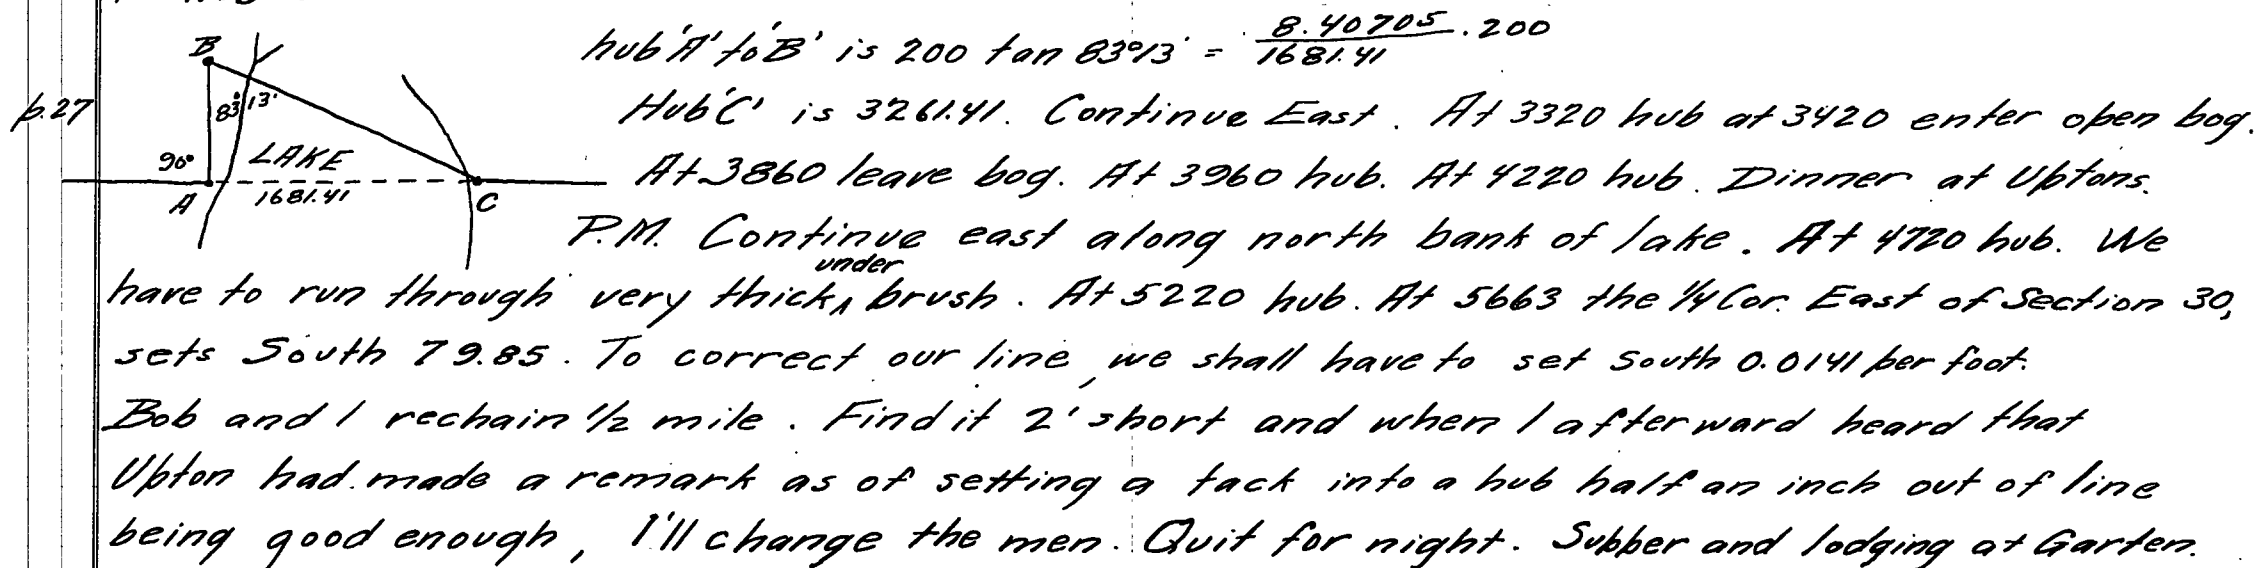 hub 'A' to 'B' is 200 tan 83°13' = 8.40705 . 200
1681.41
B
83°13'
p.27
Hub 'C' is 3261.41. Continue East. At 3320 hub at 3420 enter open bog.
90° LAKE
A 1681.41 C
At 3860 leave bog. At 3960 hub. At 4220 hub. Dinner at Uptons.
P.M. Continue east along north bank of lake. At 4720 hub. We
under
have to run through very thick ^ brush. At 5220 hub. At 5663 the 1/4 Cor. East of Section 30,
sets South 79.85. To correct our line, we shall have to set South 0.0141 per foot.
Bob and I rechain 1/2 mile. Find it 2' short and when I afterward heard that
Upton had made a remark as of setting a tack into a hub half an inch out of line
being good enough, I'll change the men. Quit for night. Supper and lodging at Garten.